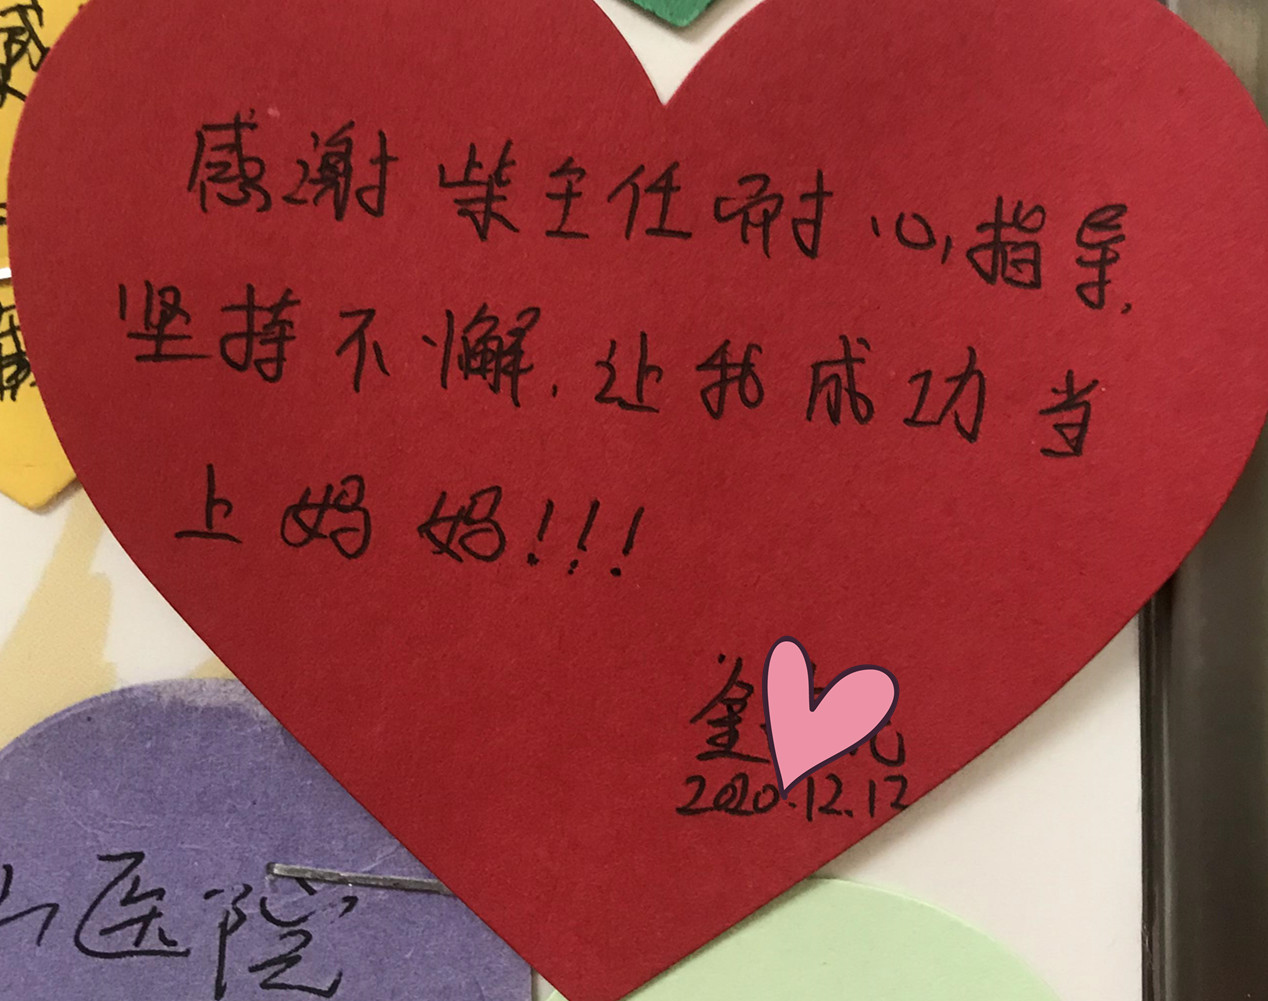 感谢柴主任耐心指导,
坚持不懈,让我成功当
上妈妈!!!
2020.12.12
医院